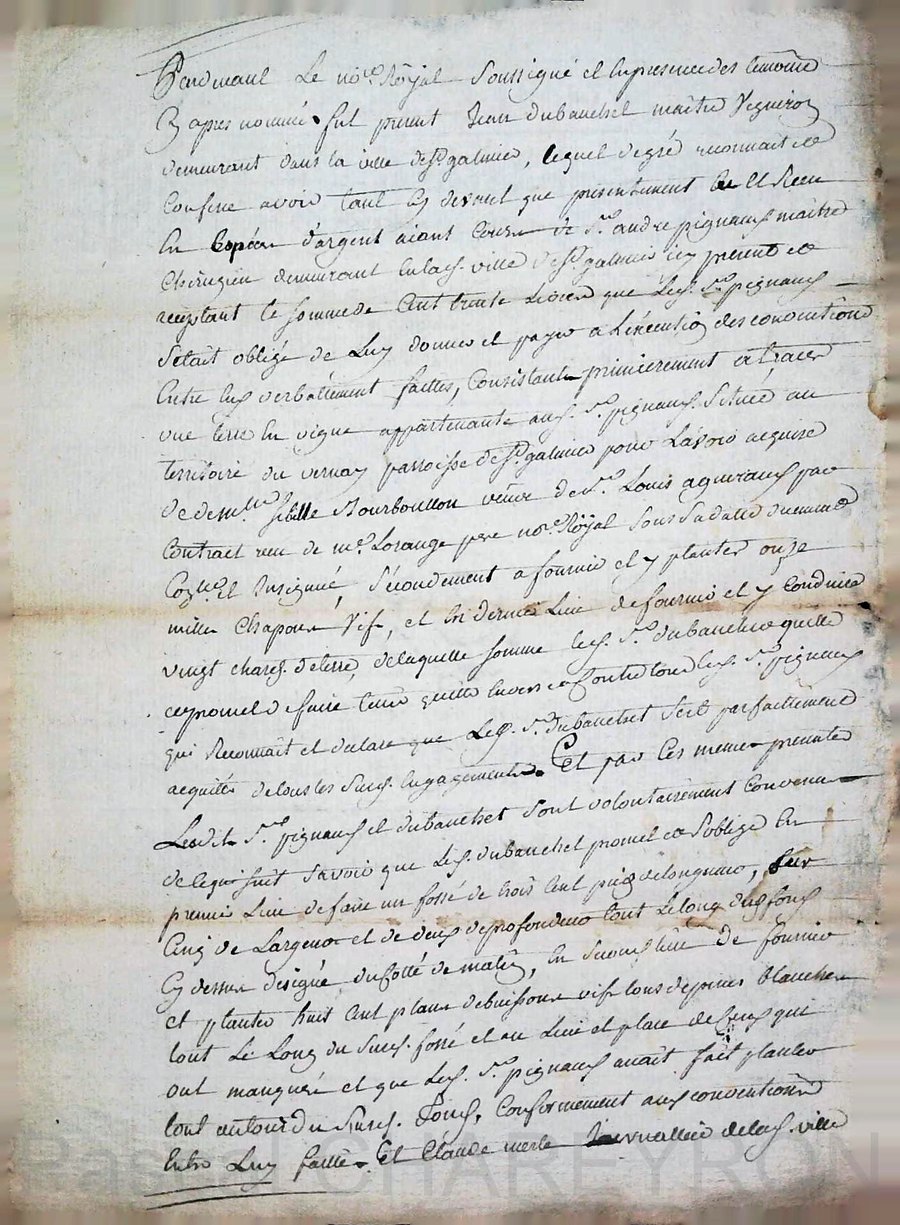 Pardevant Le no.re Royal Soussigné et En presence des temoins
Cy apres nommés fut present Jean dubanchet maître Vigneron
demeurant dans la ville de St galmier, lequel de gré reconnait et
Confesse avoir tant Cy devant que presentement Eu et Receu
En Especes d'argent aiant Cours de Sr. andré pignaud maître
Chirurgien demeurant en lad. ville de St galmier icy present et
acceptant la somme de Cent trente Livres que Led. Sr. pignaud
S'etait obligé de Luy donner et payer a L'execution des conventions
Entre Eux verballement faittes, Consistant premierement a tracer
une terre En vigne appartenante aud. Sr. pignaud Située au
territoire du vernay parroisse de St galmier pour L'avoir acquise
de dem.lle Sibille Bourboullon veuve de Sr. Louis agniraud par
Contract reçu de me. Lorange pere no.re Royal Sous Sa datte duement
Con.lé Et Insinué, Secondement a fournir et y planter onze
mille Chapons Vifs, et En dernier Lieu de fournir et y Conduire
vingt chards de terre, de laquelle somme led. Sr. dubanchet quitte
et promet de faire tenir quitte Envers et Contre tous led. Sr. pignaud
qui Reconnait et declare que Led. Sr. dubanchet S'est parfaittement
acquitté de tous les Susd. Engagements. Et par Ces memes presentes
Lesdits Srs. pignaud et dubanchet Sont volontairement Convenus
de ce qui suit Savoir que Led. dubanchet promet et S'oblige En
premier Lieu de faire un fossé de trois Cent pieds de longueur, Sur
Cinq de Largeur et de deux de profondeur tout Le long dud. fond
Cy dessus designé du Cotté de matin, En Second Lieu de fournir
et planter huit Cent plans de buissons vifs tous d'epines blanches
tout Le Long du Susd. fossé et au Lieu et place de Ceux qui
ont manqué et que Led. Sr. pignaud avait fait planter
tout autour du Susd. fond, Conformement aux conventions
Entre Eux faittes. Et Claude merle Journallier de lad. ville
Pascal CHAREYRON